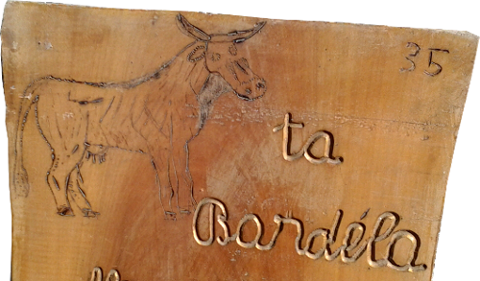 35
ta
Bardéla